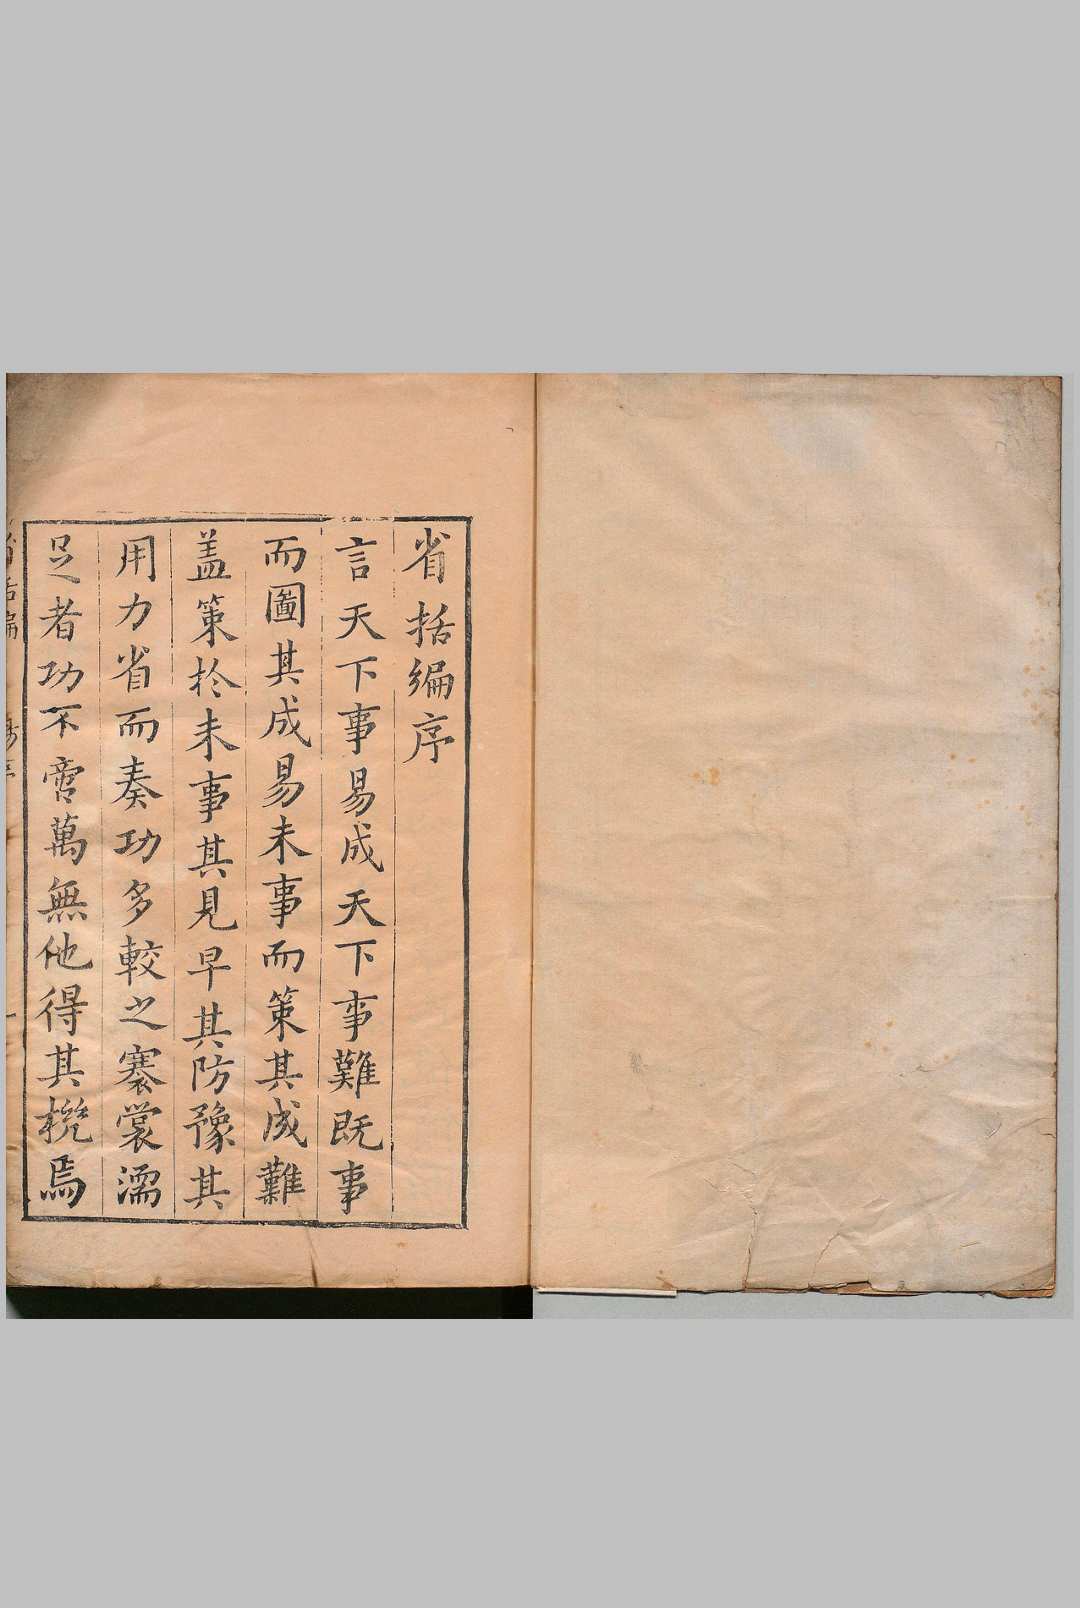 省括編序
言天下事易成天下事難既事
而圖其成易未事而策其成難
盖策於未事其見早其防豫其
用力省而奏功多較之褰裳濡
足者功不啻萬無他得其機焉
省括編